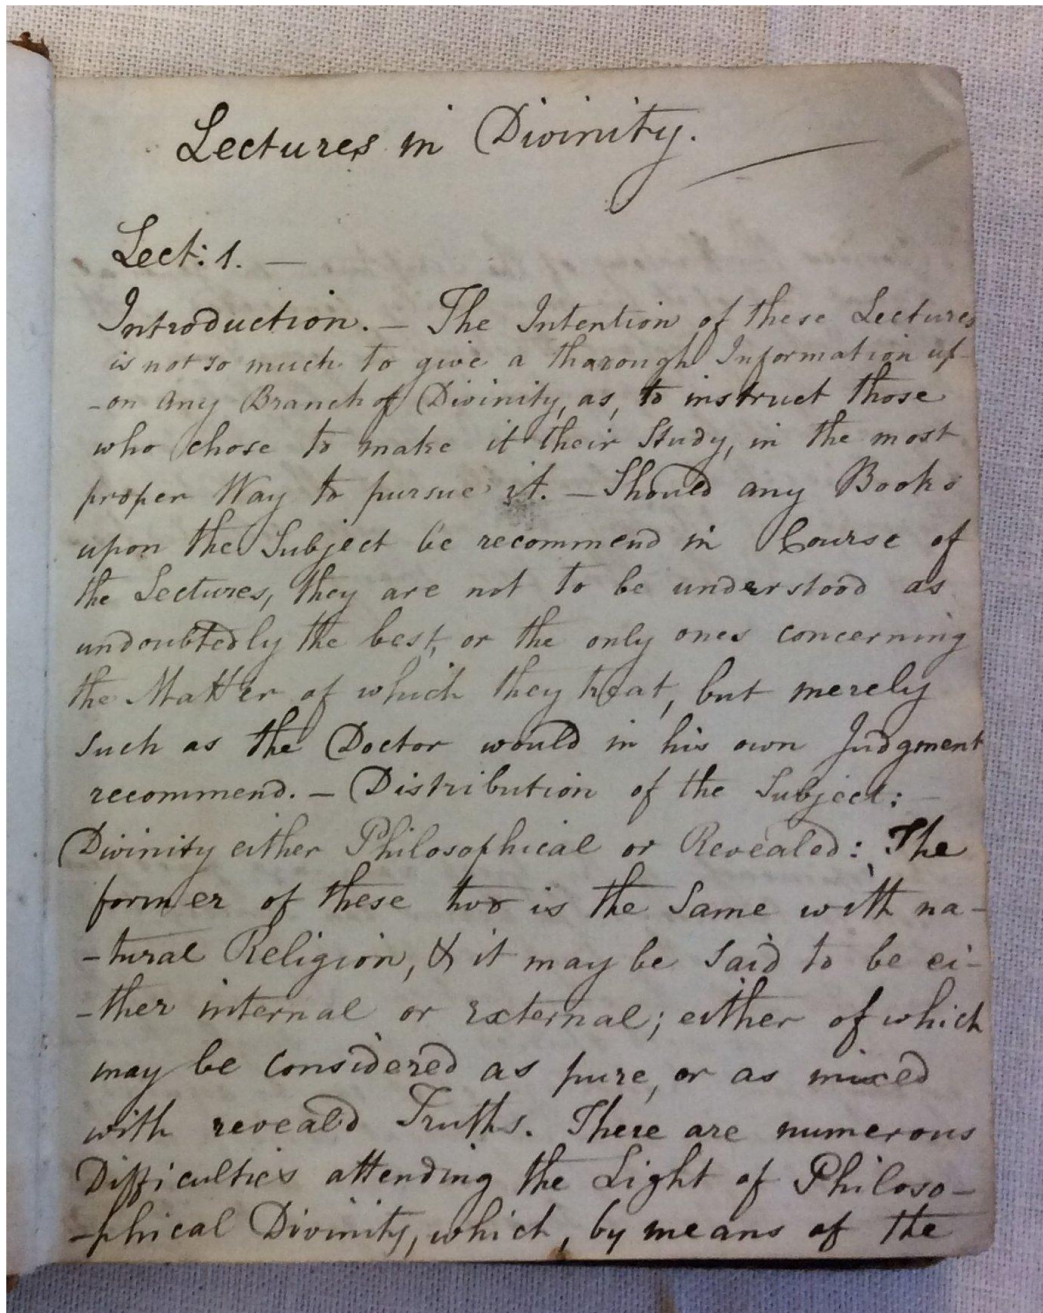 Lectures in Divinity.
Lect: 1. —
Introduction. — The Intention of these Lectures
is not so much to give a thorough Information up-
-on any Branch of Divinity, as, to instruct those
who chose to make it their Study, in the most
proper Way to pursue it. — Should any Books
upon the Subject be recommend in Course of
the Lectures, they are not to be understood as
undoubtedly the best, or the only ones concerning
the Matter of which they treat, but merely
such as the Doctor would in his own Judgment
recommend. — Distribution of the Subject: —
Divinity either Philosophical or Revealed: The
former of these two is the same with na-
-tural Religion, & it may be said to be ei-
-ther internal or external; either of which
may be considered as pure, or as mixed
with reveald Truths. There are numerous
Difficulties attending the Light of Philoso-
-phical Divinity, which, by means of the